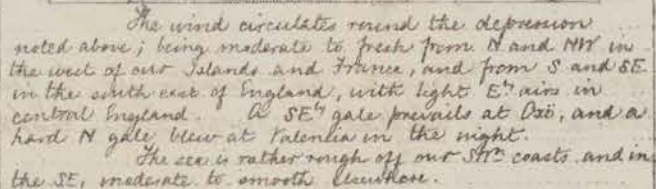 The wind circulates round the depression
noted above; being moderate to fresh from N and NW in
the west of our Islands and France, and from S and SE
in the south east of England, with light Ely airs in
central England. A SEly gale prevails at Oxö, and a
hard N gale blew at Valencia in the night.
The sea is rather rough off our SWn coasts and in
the SE, moderate to smooth elsewhere.